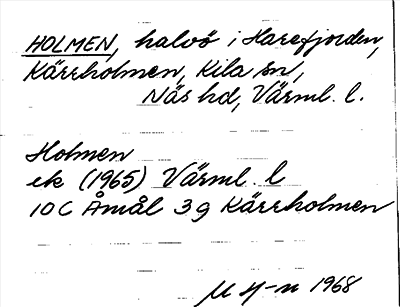 HOLMEN, halvö i Harefjorden,
Kärrholmen, Kila sn,
Näs hd, Värml. l.
Holmen
ek (1965) Värml. l
10 C Åmål 3 g Kärrholmen
1968